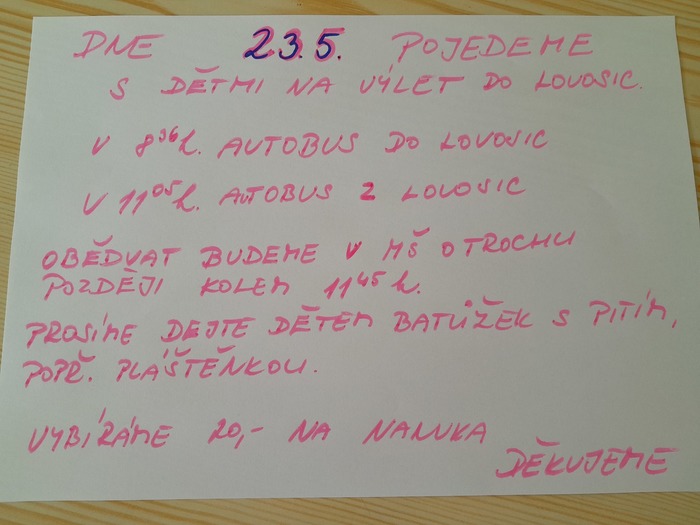 DNE 23.5. POJEDEME
S DĚTMI NA VÝLET DO LOVOSIC.
V 8³⁶h. AUTOBUS DO LOVOSIC
V 11⁰⁵h. AUTOBUS Z LOVOSIC
OBĚDVAT BUDEME V MŠ O TROCHU
POZDĚJI KOLEM 11⁴⁵h.
PROSÍME DEJTE DĚTEM BATŮŽEK S PITÍM,
POPŘ. PLÁŠTĚŇKOU.
VYBÍRÁME 20,- NA NANUKA
DĚKUJEME